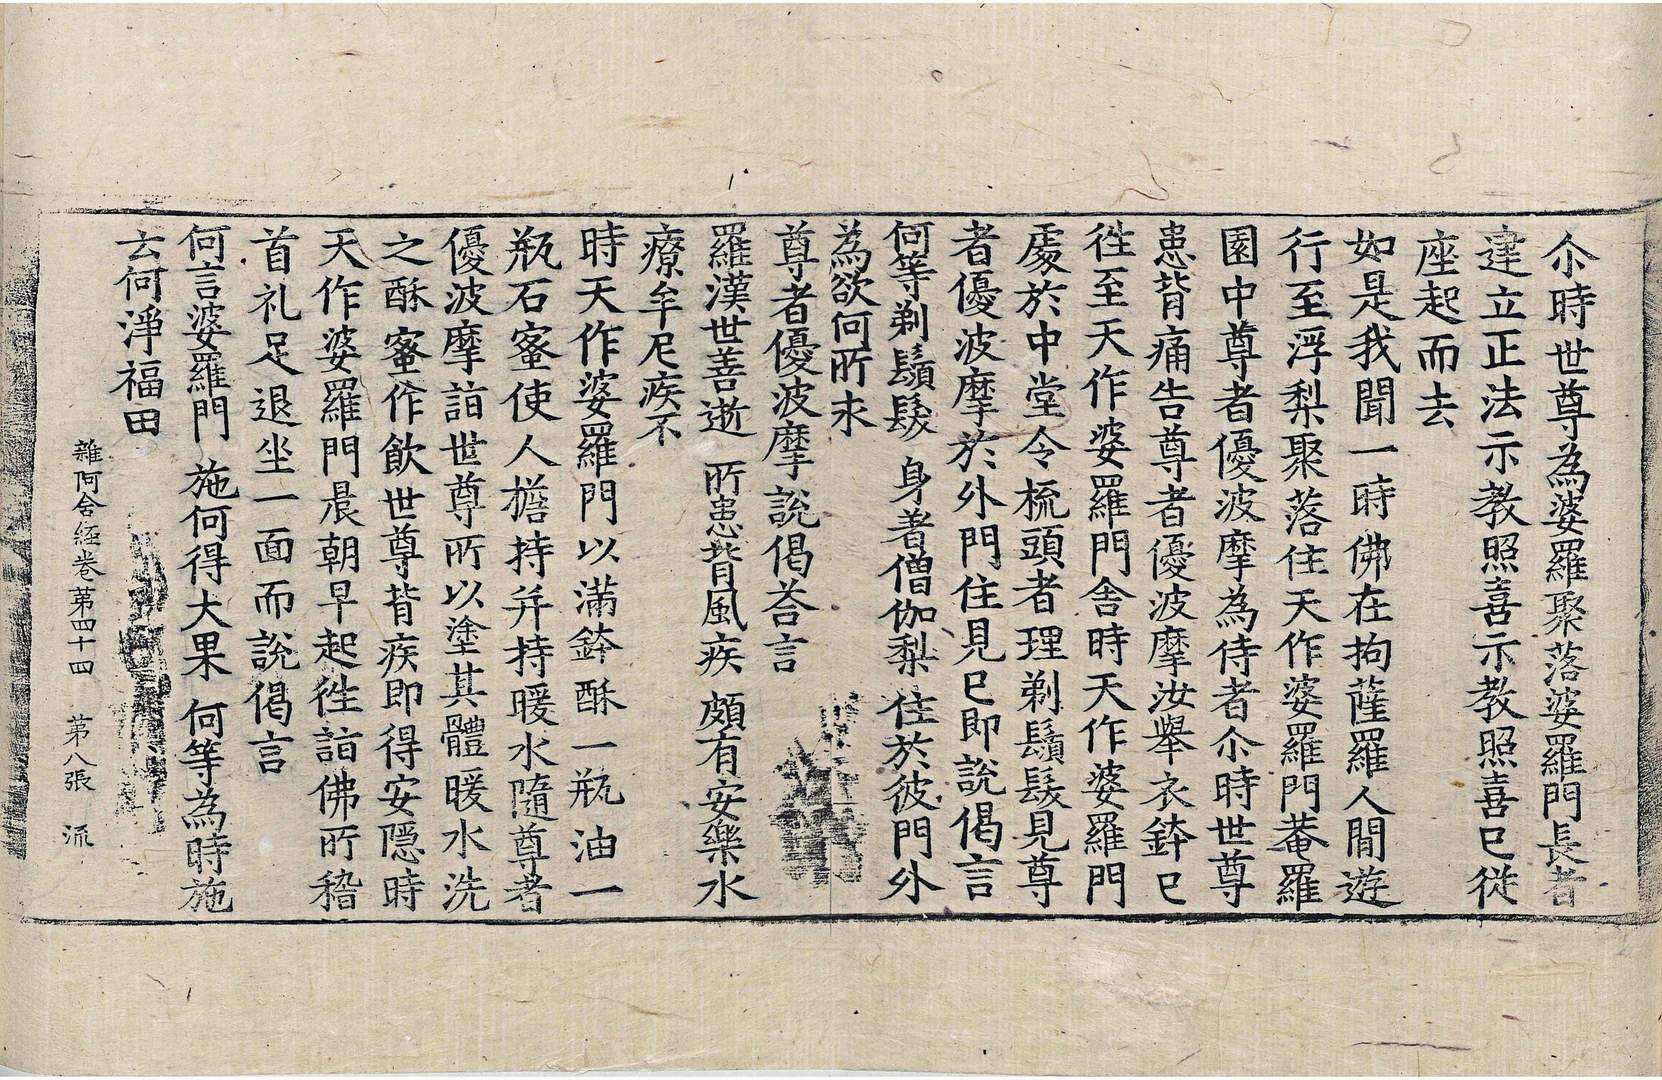 尒時世尊為婆羅聚落婆羅門長者
建立正法示教照喜示教照喜已從
座起而去
如是我聞一時佛在拘薩羅人間遊
行至浮梨聚落住天作婆羅門菴羅
園中尊者優波摩為侍者尒時世尊
患背痛告尊者優波摩汝舉衣鉢已
徃至天作婆羅門舍時天作婆羅門
處於中堂令梳頭者理剃鬚髮見尊
者優波摩於外門住見已即說偈言
何等剃鬚髮 身著僧伽梨 住於彼門外
為欲何所求
尊者優波摩說偈荅言
羅漢世善逝 所患背風疾 頗有安樂水
療牟尼疾不
時天作婆羅門以滿鉢酥一瓶油一
瓶石蜜使人擔持并持暖水隨尊者
優波摩詣世尊所以塗其體暖水洗
之酥蜜作飲世尊背疾即得安隱時
天作婆羅門晨朝早起徃詣佛所稽
首礼足退坐一面而說偈言
何言婆羅門 施何得大果 何等為時施
云何淨福田
雜阿含經卷第四十四 第八張 流